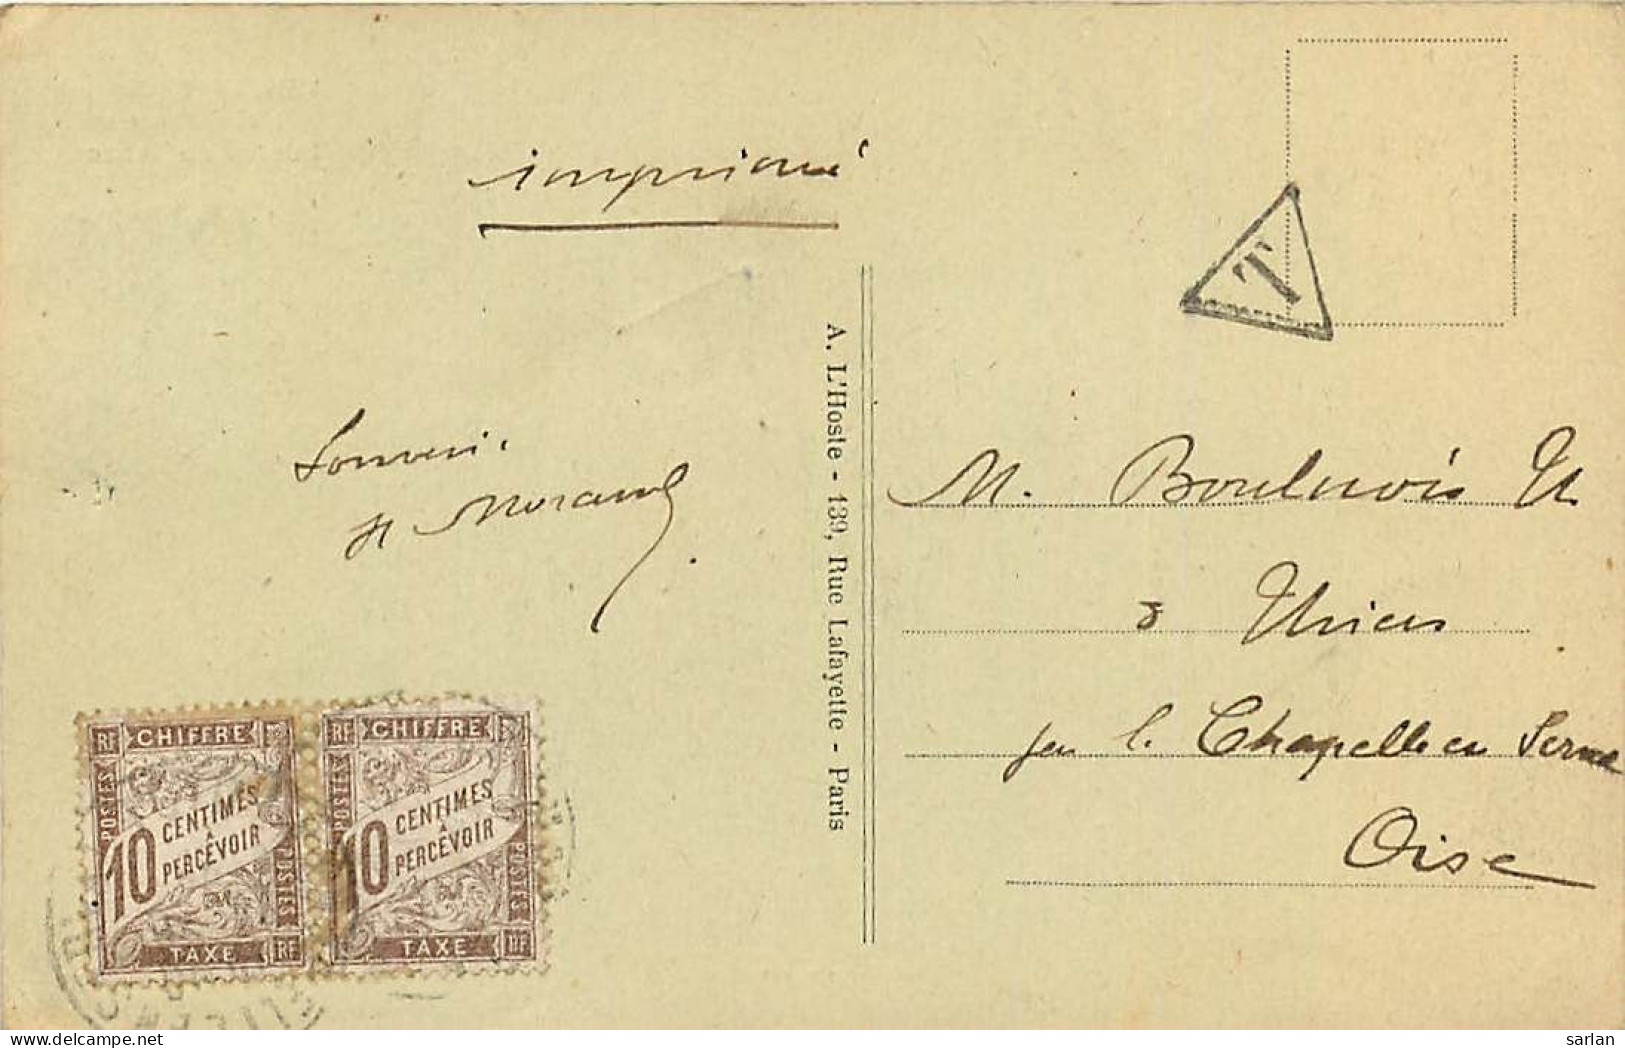 imprimé
T
A. L'Hoste - 139, Rue Lafayette - Paris
Souvenir
H Morand
M. Boulnois
à Thiers
par la Chapelle en Serval
Oise
RF CHIFFRE
POSTES
10 CENTIMES
À
PERCEVOIR
POSTES
TAXE RF
RF CHIFFRE
POSTES
10 CENTIMES
À
PERCEVOIR
POSTES
TAXE RF
sarlan